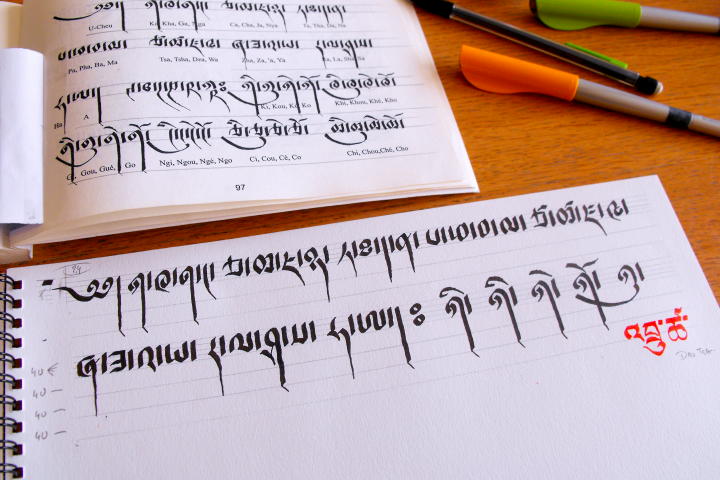 U-Cheu Ka Kha, Ga, Nga Ca, Cha, Ja, Nya Ta, Tha, Da, Na
པ་ཕ་བ་མ། ཙ་ཚ་ཛ་ཝ། ཞ་ཟ་འ་ཡ། ར་ལ་ཤ་ས།
Pa, Pha, Ba, Ma Tsa, Tsha, Dza, Wa Zha, Za, 'a, Ya Ra, La, Sha, Sa
ཧ་ཨ།
Ha A Ki, Kou, Ké, Ko Khi, Khou, Khé, Kho
གི གུ གེ གོ ངི ངུ ངེ ངོ ཅི ཅུ ཅེ ཅོ ཆི ཆུ ཆེ ཆོ
Gou, Gué, Go Ngi, Ngou, Ngé, Ngo Ci, Cou, Cé, Co Chi, Chou,Ché, Cho
97
༄༅། ཀ་ཁ་ག་ང། ཅ་ཆ་ཇ་ཉ། ཏ་ཐ་ད་ན། པ་ཕ་བ་མ། ཙ་ཚ་ཛ་ཝ།
ཞ་ཟ་འ་ཡ། ར་ལ་ཤ་ས། ཧ་ཨ།
འབྲུ་ཚ
40
40
40